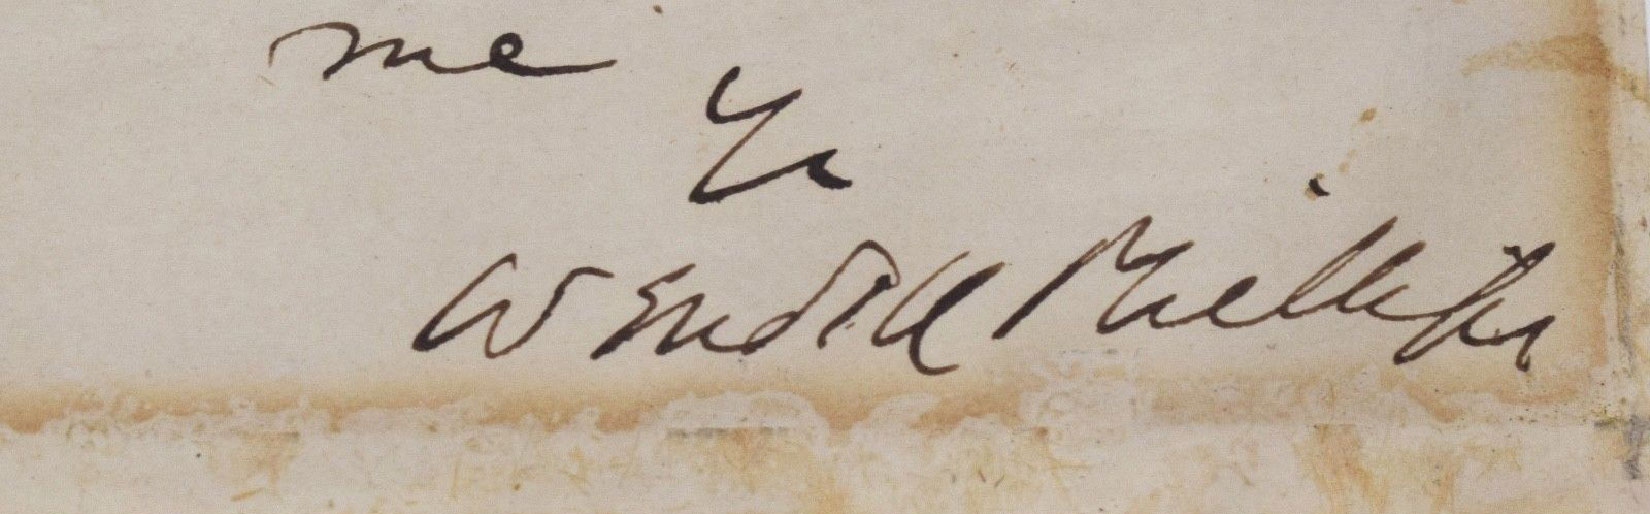 me
Yr
Wendell Phillips